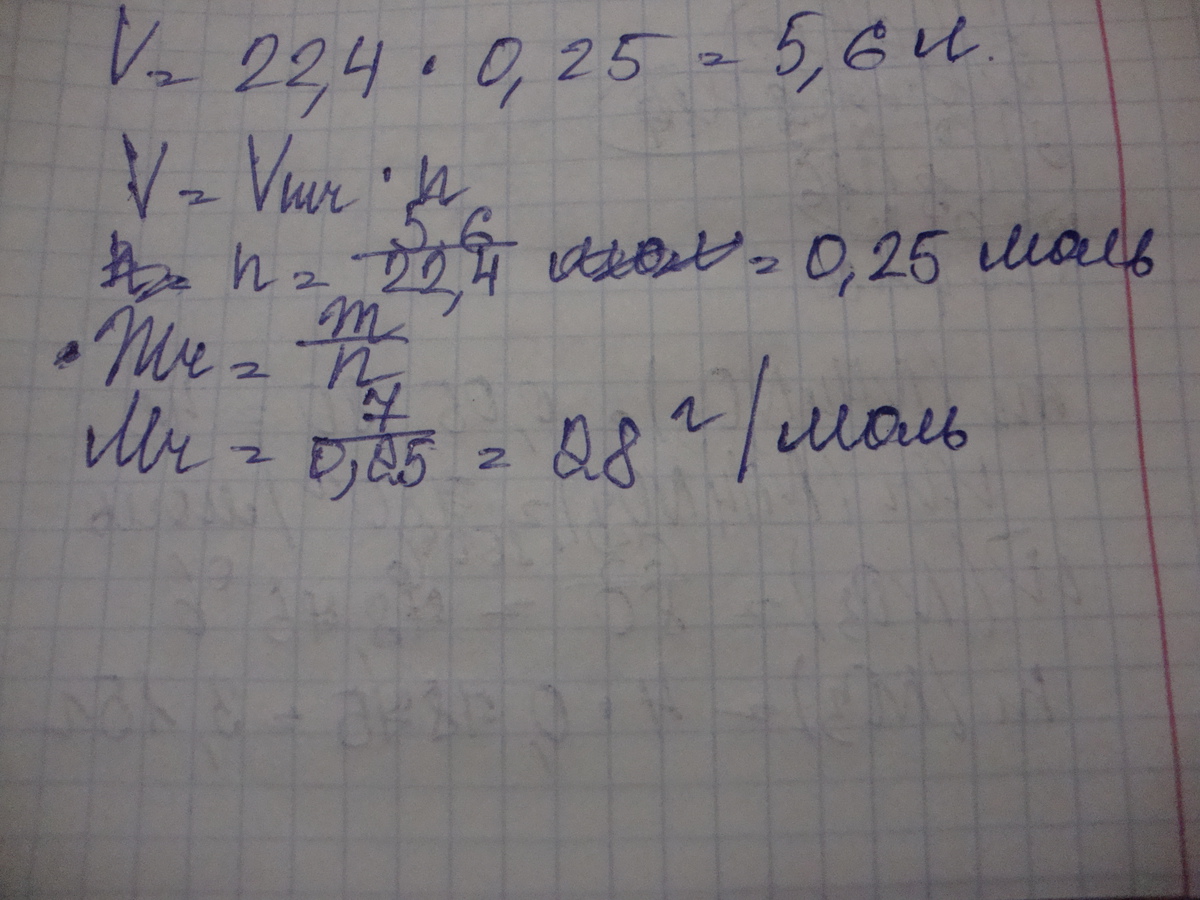 V = 22,4 · 0,25 = 5,6 л.
V = Vm · n
n = 5,6 / 22,4 = 0,25 моль
Mr = m / n
Mr = 7 / 0,25 = 28 г/моль